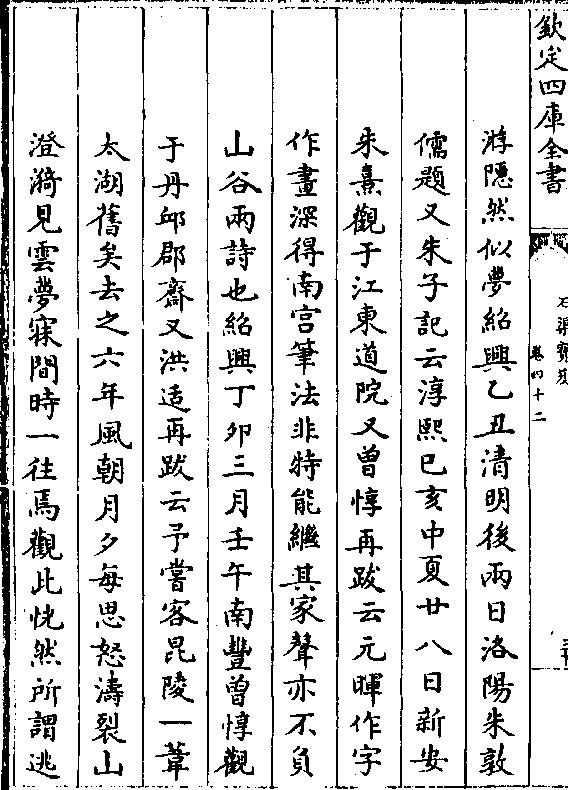 欽定四庫全書
石渠寶笈
卷四十二
游隱然似夢紹興乙丑清明後兩日洛陽朱敦
儒題又朱子記云淳熙己亥中夏廿八日新安
朱熹觀于江東道院又曾惇再跋云元暉作字
作畫深得南宫筆法非特能繼其家聲亦不負
山谷兩詩也紹興丁卯三月壬午南豐曾惇觀
于丹邱郡齋又洪适再跋云予嘗客昆陵一葦
太湖舊矣去之六年風朝月夕每思怒濤裂山
澄漪見雲夢寐間時一往焉觀此恍然所謂逃